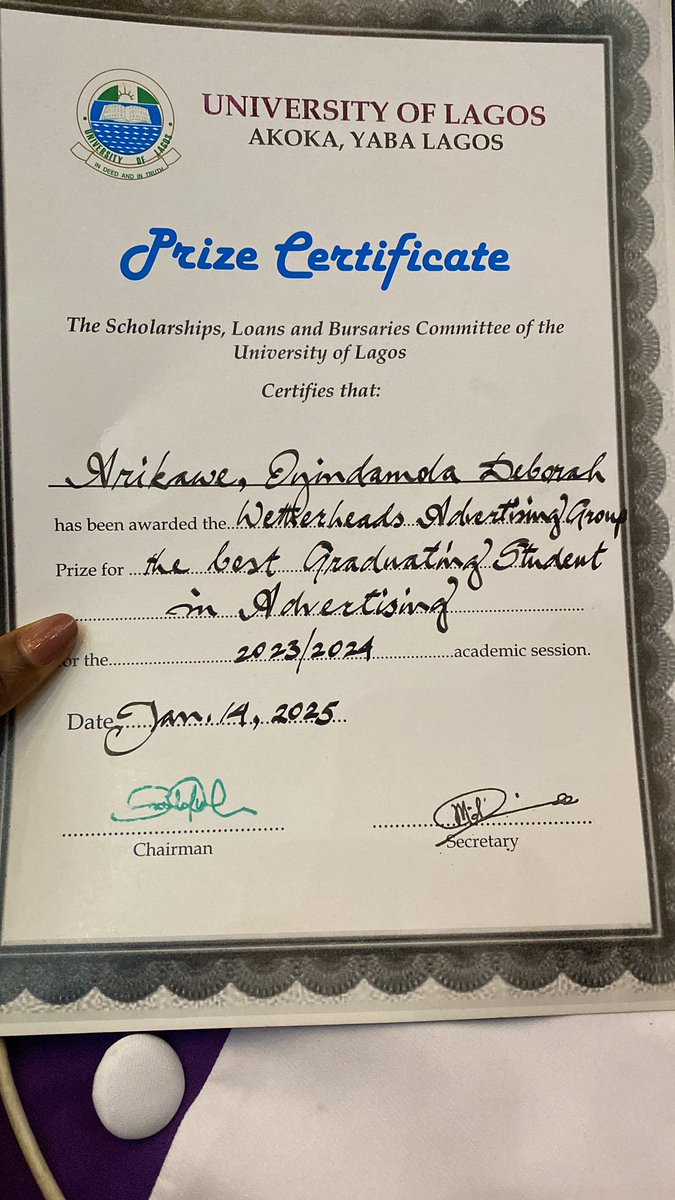 UNIVERSITY OF LAGOS
IN DEED AND IN TRUTH
UNIVERSITY OF LAGOS
AKOKA, YABA LAGOS
Prize Certificate
The Scholarships, Loans and Bursaries Committee of the
University of Lagos
Certifies that:
Arikawe, Oyindamola Deborah
has been awarded the Wetherheads Advertising Group
Prize for the best Graduating Student
in Advertising
or the 2023/2024 academic session.
Date Jan. 14, 2025
Chairman
Secretary